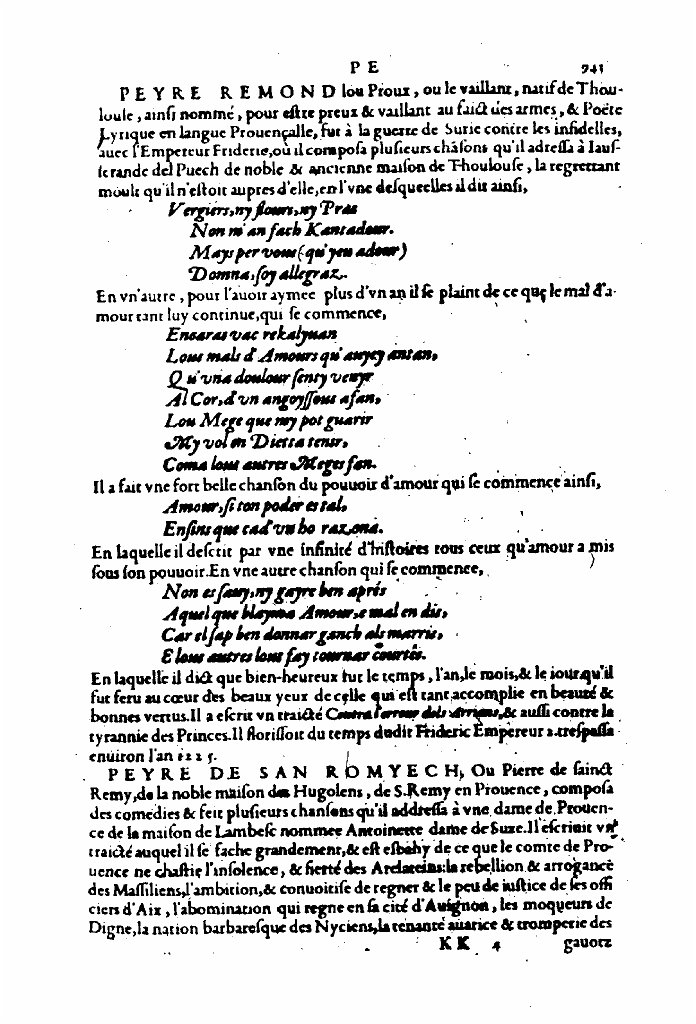 P E 941
PEYRE REMOND lou Proux, ou le vaillant, natif de Thou-
louse, ainsi nommé, pour estre preux & vaillant au faict des armes, & Poëte
Lyrique en langue Prouençalle, fut à la guerre de Surie contre les infidelles,
auec l'Empereur Frideric, où il composa plusieurs chãsons qu'il adressa à Iauf-
serande del Puech de noble & ancienne maison de Thoulouse, la regrettant
moult qu'il n'estoit aupres d'elle, en l'vne desquelles il dit ainsi,
Vergiers, ny flours, ny Pras
Non m'an fach Kantadour.
Mays per vous (qu'yeu adour)
Domna, soy allegraz.
En vn'autre, pour l'auoir aymee plus d'vn an il se plaint de ce que le mal d'a-
mour tant luy continue, qui se commence,
Encaras vac rekalyuan
Lous mals d'Amours qu'auyey antan,
Qu'vna doulour senty venyr
Al Cor, d'vn angoyssous afan,
Lou Mege que my pot guarir
My vol en Dietta tenir,
Coma lous autres Meges fan.
Il a fait vne fort belle chanson du pouuoir d'amour qui se commence ainsi,
Amour, si ton poder es tal,
Ensins que cad'vn ho razona.
En laquelle il descrit par vne infinité d'histoires tous ceux qu'amour a mis
sous son pouuoir. En vne autre chanson qui se commence,
Non es sauy, ny gayre ben aprés
Aquel que blayma Amour, e mal en dis,
Car el sap ben donnar gauch als marris,
E lous autres lous fay tournar courtés.
En laquelle il dict que bien-heureux fut le temps, l'an, le mois, & le iour qu'il
fut feru au cœur des beaux yeux de celle qui est tant accomplie en beauté &
bonnes vertus. Il a escrit vn traicté Contra l'errour dels Arrians, & aussi contre la
tyrannie des Princes. Il florissoit du temps dudit Frideric Empereur 2. trespassa
enuiron l'an 1225.
PEYRE DE SAN ROMYECH, Ou Pierre de sainct
Remy, de la noble maison des Hugolens, de S. Remy en Prouence, composa
des comedies & feit plusieurs chansons qu'il addressa à vne dame de Prouen-
ce de la maison de Lambesc nommee Antoinette dame de Suze. Il escriuit vn
traicté auquel il se fache grandement, & est esbahy de ce que le comte de Pro-
uence ne chastie l'insolence, & fierté des Arelateins: la rebellion & arrogance
des Massiliens, l'ambition, & conuoitise de regner & le peu de iustice de ses offi
ciers d'Aix, l'abomination qui regne en sa cité d'Auignon, les moqueurs de
Digne, la nation barbaresque des Nyciens, la tenanté auarice & tromperie des
KK 4 gauotz